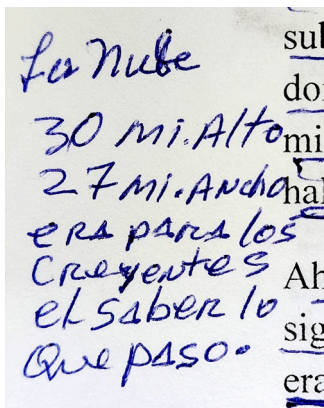 La Nube
30 mi. Alto
27 mi. Ancho
era para los
Creyentes
el saber lo
que paso.
sub
dor
mi
hal
Ah
sig
era